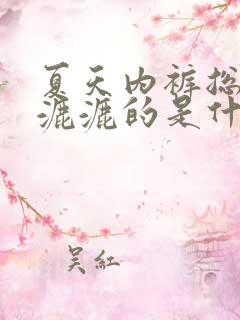 夏天内裤总
漉漉的是什
吴红